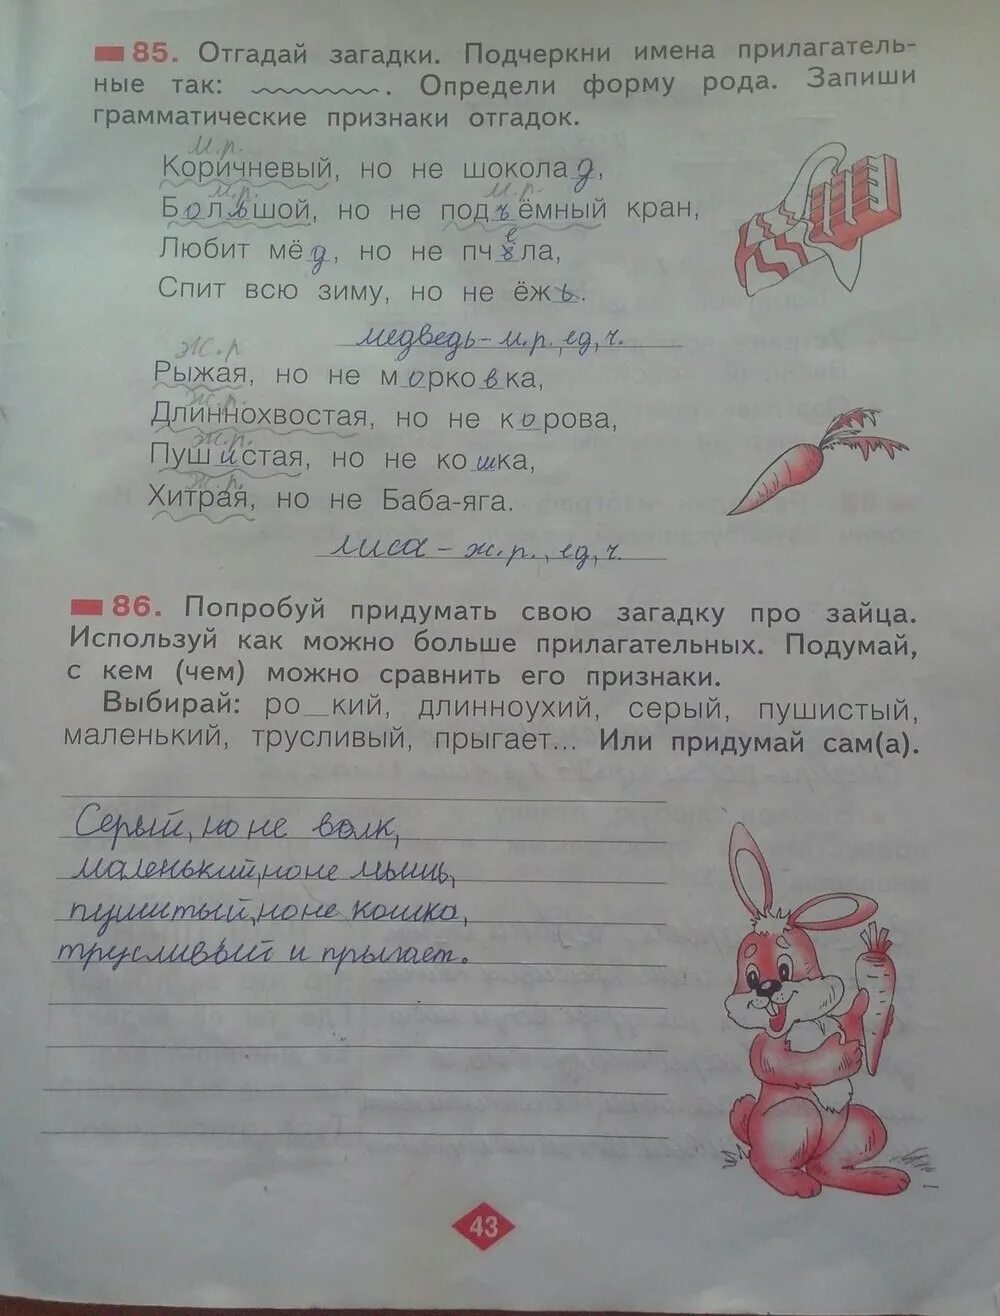 85. Отгадай загадки. Подчеркни имена прилагатель-
ные так: . Определи форму рода. Запиши
грамматические признаки отгадок.
м.р.
Коричневый, но не шоколад,
м.р. м.р.
Большой, но не подъёмный кран,
Любит мёд, но не пчела,
Спит всю зиму, но не ёжъ.
медведь - м.р., ед, ч.
ж.р
Рыжая, но не морковка,
ж.р.
Длиннохвостая, но не корова,
ж.р.
Пушистая, но не кошка,
ж.р.
Хитрая, но не Баба-яга.
лиса - ж.р., ед, ч.
86. Попробуй придумать свою загадку про зайца.
Используй как можно больше прилагательных. Подумай,
с кем (чем) можно сравнить его признаки.
Выбирай: ро_кий, длинноухий, серый, пушистый,
маленький, трусливый, прыгает... Или придумай сам(а).
Серый, но не волк,
маленький, но не мышь,
пушитый, но не кошка,
трусливый и прыгает.
43